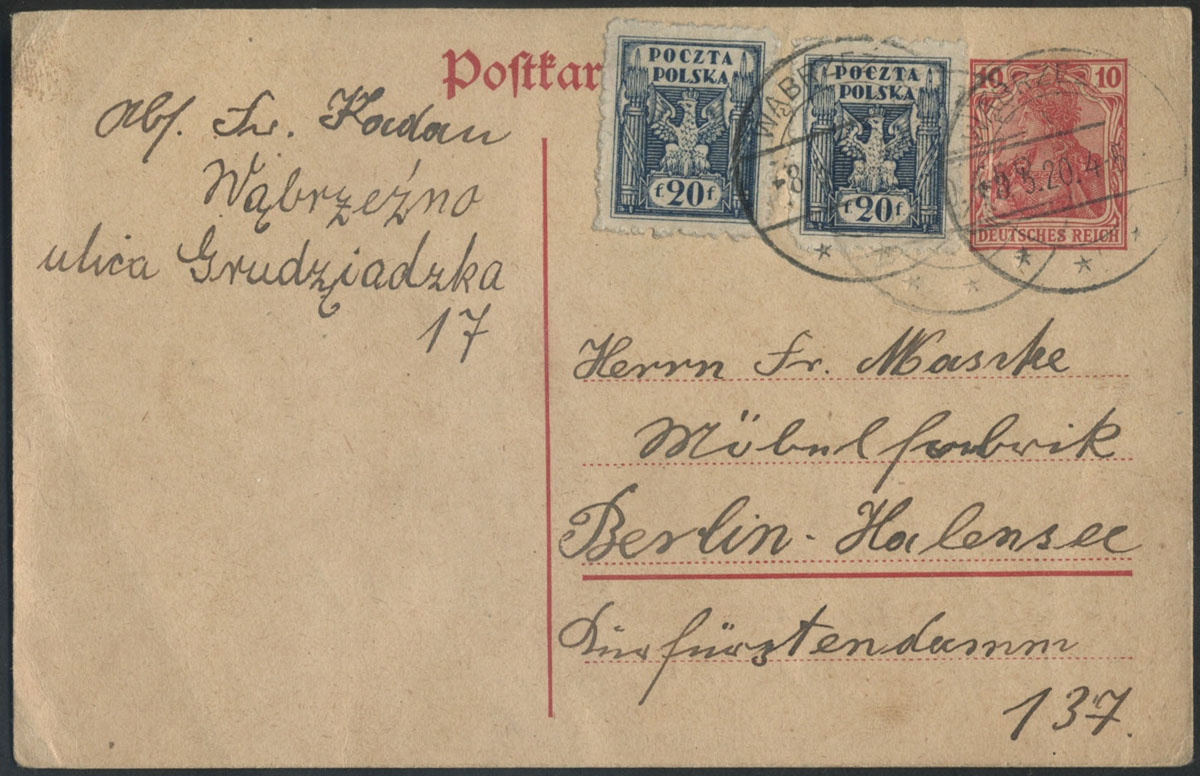 Postkar
Abs. Fr. Kadau
Wąbrzeźno
ulica Grudziądzka
17
POCZTA
POLSKA
f 20 f
POCZTA
POLSKA
f 20 f
10 10
DEUTSCHES REICH
WĄBRZE
8.3.20.4-
Herrn Fr. Maschke
Möbelfabrik
Berlin-Halensee
Kurfürstendamm
137.